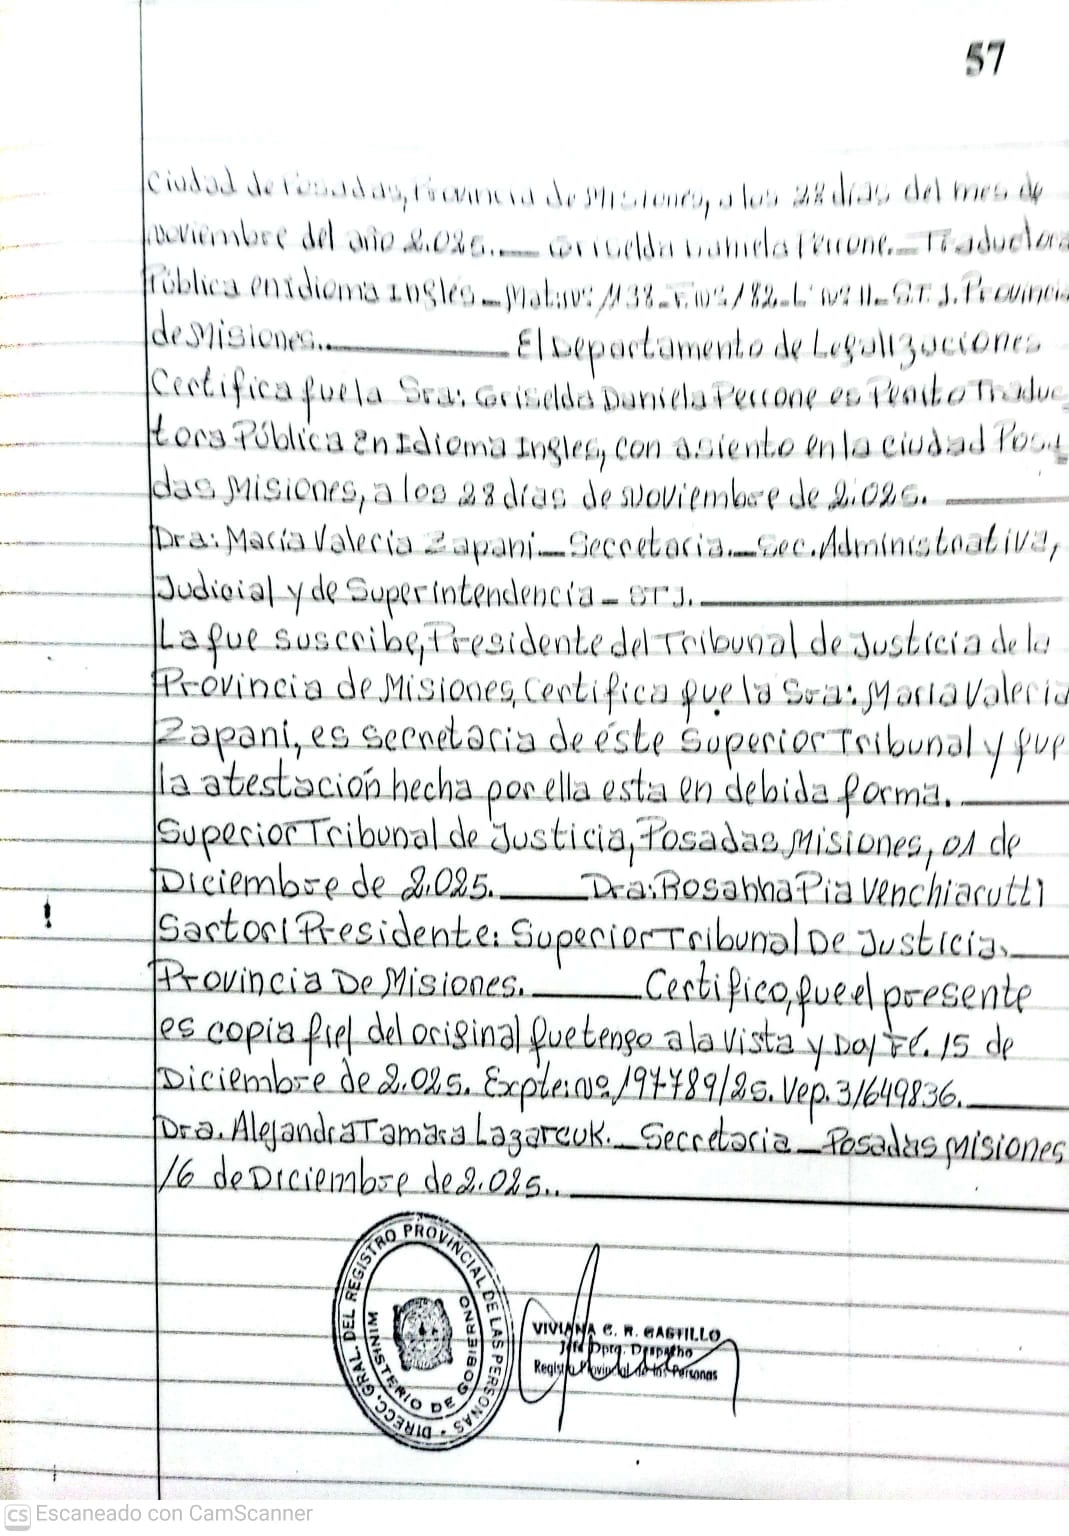 57
Ciudad de Posadas, Provincia de Misiones, a los 28 días del mes de
noviembre del año 2.025.__ Griselda Daniela Perrone._ Traductora
Pública en Idioma Ingles_ Mat: Nº 1138_ F. Nº 182_ L' Nº II_ S.T.J. Provincia
de Misiones._____ El Departamento de Legalizaciones
Certifica que la Sra: Griselda Daniela Perrone es Perito Traduc_
tora Pública En Idioma Ingles, con asiento en la ciudad Posa_
das Misiones, a los 28 días de Noviembre de 2.025.____
Dra: María Valeria Zapani_ Secretaria._ Sec. Administrativa,
Judicial y de Superintendencia_ STJ._____
La que suscribe, Presidente del Tribunal de Justicia de la
Provincia de Misiones, Certifica que la Sra: María Valeria
Zapani, es secretaria de éste Superior Tribunal y que
la atestación hecha por ella esta en debida forma.____
Superior Tribunal de Justicia, Posadas, Misiones, 01 de
Diciembre de 2.025.____ Dra: Rosanna Pia Venchiarutti
Sartori Presidente: Superior Tribunal De Justicia.__
Provincia De Misiones.____ Certifico, que el presente
es copia fiel del original que tengo a la vista y Doy Fé. 15 de
Diciembre de 2.025. Expte: Nº 197789/25. Vep. 31649836.____
Dra. Alejandra Tamara Lazarcuk._ Secretaria_ Posadas Misiones
16 de Diciembre de 2.025..____
DIRECC. GRAL. DEL REGISTRO PROVINCIAL DE LAS PERSONAS
MINISTERIO DE GOBIERNO
VIVIANA C. R. CASTILLO
Jefe Dpto. Despacho
Registro Provincial de las Personas
CS Escaneado con CamScanner